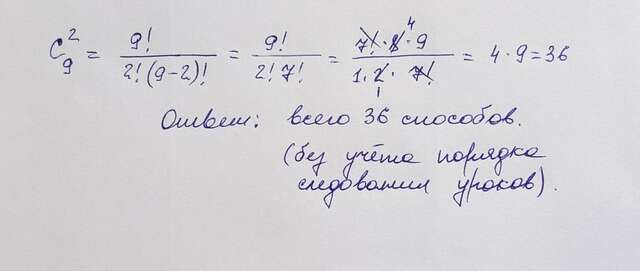 C₉² = 9! / 2!(9-2)! = 9! / 2! 7! = 7! · 8 4 · 9 / 1 · 2 1 · 7! = 4 · 9 = 36
Ответ: всего 36 способов.
(без учёта порядка
следования уроков).